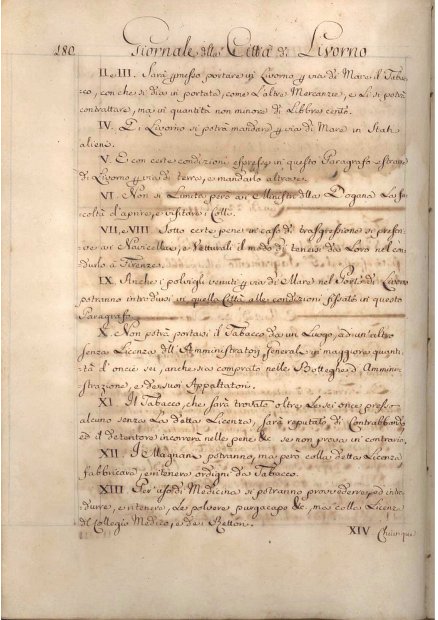 180 Giornale della Città di Livorno
II. e III. Sarà permesso portare in Livorno p via di Mare il Tabac-
co, con che si dia in portata, come l'altre Mercanzie, e Lì si potrà
contrattare, mà in quantità non minore di Libbre cento.
IV. E di Livorno si potrà mandare p via di Mare in Stati
alieni.
V. E con certe condizioni espresse in questo Paragrafo estrarre
di Livorno p via di terra, e mandarlo altrove.
VI. Non si Limita però ai Ministri della Dogana La fa-
coltà d'aprire, e visitare i Colli.
VII, e VIII Sotto certe pene in caso di trasgressione si prescri-
ve ai Navicellai, e Vetturali il modo di tenersi da Loro nel con-
durlo à Firenze.
IX. Anche i polvigli venuti p via di Mare nel Porto di Livorno
potranno introdursi in quella Città alle condizioni fissate in questo
Paragrafo.
X. Non potrà portarsi il Tabacco da un Luogo, ad un'altro
senza Licenza dell'Amministratori Generali in maggiore quanti-
tà d'oncie sei, anche sia comprato nelle Botteghe d'Ammini-
strazione, e de suoi Appaltatori.
XI. Il Tabacco, che sarà trovato oltre Le sei once presso
alcuno senza La detta Licenza, sarà reputato di Contrabbando,
ed il detentore incorrerà nelle pene &c se non prova in contrario.
XII. I Magnani potranno, ma però colla detta Licenza
fabbricare, e ritenere ordigni da Tabacco.
XIII Per uso di Medicina si potranno provvedere, ed intro-
durre, e ritenere, Le polvere purgacapo &c, ma colla Licenza
del Collegio Medico, e de Rettori.
XIV Chiunque